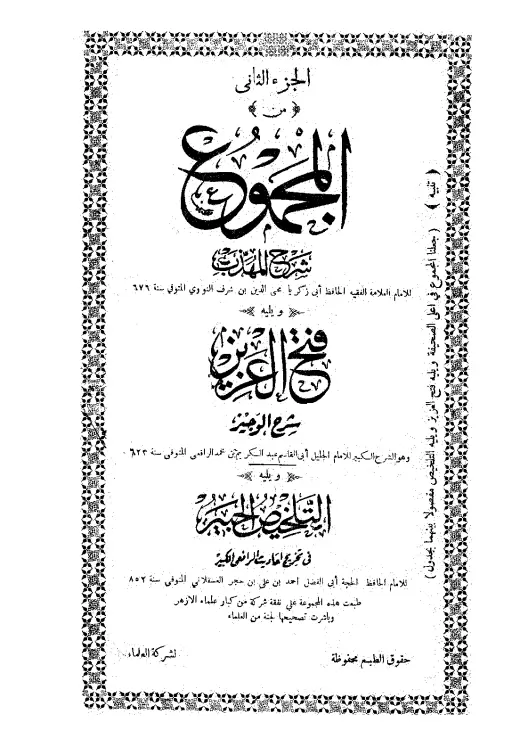 الجزء الثاني
﴿ من ﴾
المجموع
شرح المهذب
للامام العلامة الفقيه الحافظ أبي زكريا محيي الدين بن شرف النووي المتوفي سنة ٦٧٦
﴿ ويليه ﴾
فتح العزيز
شرح الوجيز
وهو الشرح الكبير للامام الجليل أبي القاسم عبد الكريم بن محمد الرافعي المتوفي سنة ٦٢٣
﴿ ويليه ﴾
التلخيص الحبير
في تخريج احاديث الرافعي الكبير
للامام الحافظ الحجة أبي الفضل احمد بن علي بن حجر العسقلاني المتوفي سنة ٨٥٢
طبعت هذه المجموعة على نفقة شركة من كبار علماء الازهر
وباشرت تصحيحها لجنة من العلماء
حقوق الطبع محفوظة
لشركة العلماء
﴿ تنبيه ﴾ ( جعلنا المجموع في اعلى الصحيفة ويليه فتح العزيز ويليه التلخيص مفصولا بينهما بجدول )